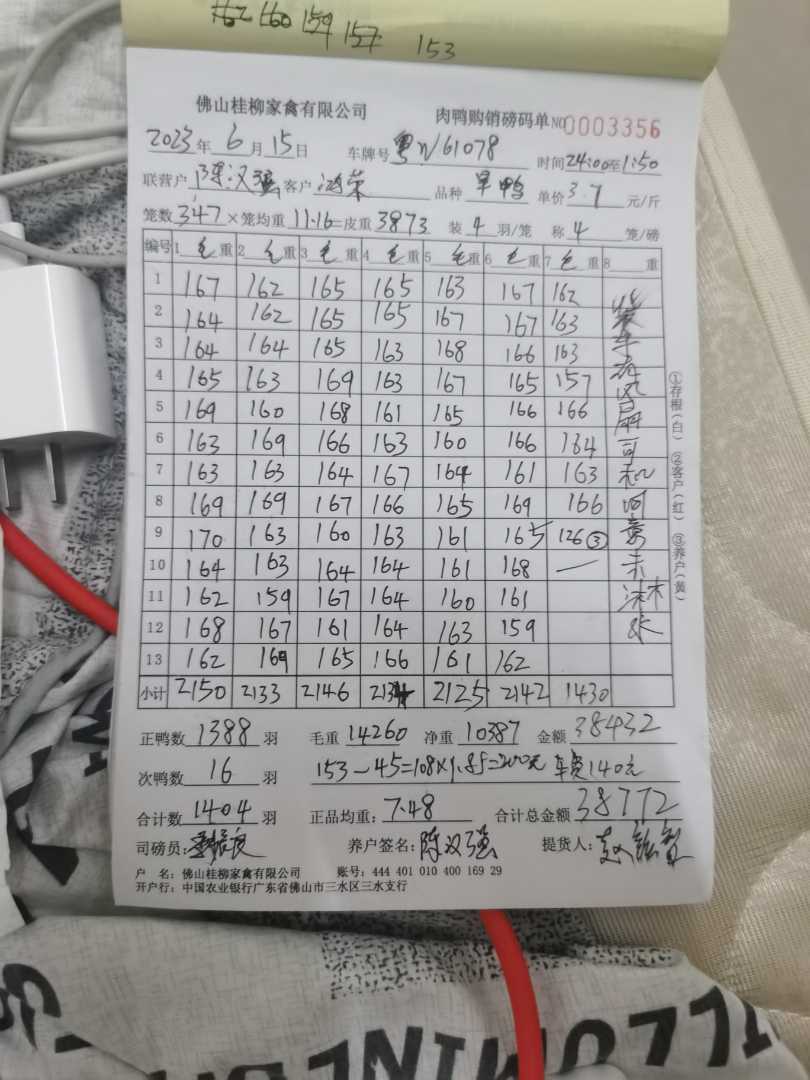 162 160 159 157 153
佛山桂柳家禽有限公司 肉鸭购销磅码单 NO 0003356
2023年6月15日 车牌号 粤W61078 时间24:00至1:50
联营户 陈汉强 客户 鸿荣 品种 旱鸭 单价3.7元/斤
笼数347×笼均重11.16=皮重3873 装4羽/笼 称4笼/磅
编号 1毛重 2毛重 3毛重 4毛重 5毛重 6毛重 7毛重 8重
1 167 162 165 165 163 167 162
2 164 162 165 165 167 167 163
3 164 164 165 163 168 166 163
4 165 163 169 163 167 165 157
5 169 160 168 161 165 166 166
6 163 169 166 163 160 166 164
7 163 163 164 167 164 161 163
8 169 169 167 166 165 169 166
9 170 163 160 163 161 165 126③
10 164 163 164 164 161 168 —
11 162 159 167 164 160 161
12 168 167 161 164 163 159
13 162 169 165 166 161 162
小计 2150 2133 2146 2134 2125 2142 1430
①存根(白) ②客户(红) ③养户(黄)
正鸭数1388羽 毛重14260 净重10387 金额38432
次鸭数16羽 153-45=108×1.85=200元 车费140元
合计数1404羽 正品均重:7.48 合计总金额38772
司磅员: 养户签名:陈汉强 提货人:
户 名:佛山桂柳家禽有限公司 账号:444 401 010 400 169 29
开户行:中国农业银行广东省佛山市三水区三水支行